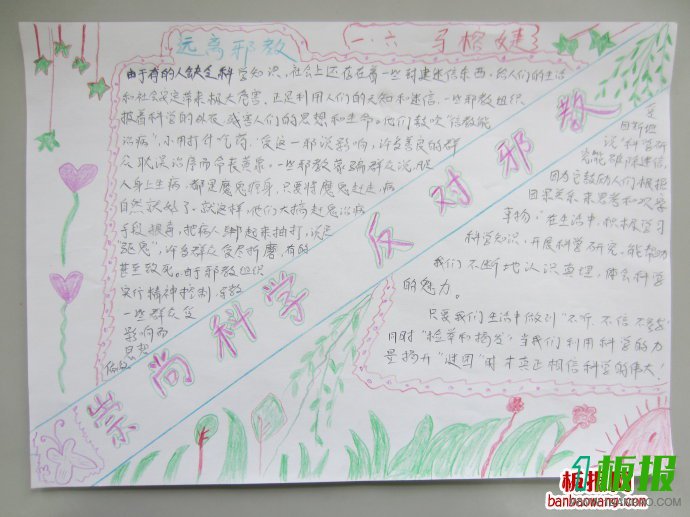 远离邪教
一.六 马榕婕
由于有的人缺乏科学知识,社会上还存在着一些封建迷信东西,给人们的生活
和社会安定带来极大危害。正是利用人们的无知和迷信,一些邪教组织
披着科学的外衣,残害人们的思想和生命。他们鼓吹“信教能
治病”,不用打针吃药。受这一邪说影响,许多善良的群
众耽误治疗而命丧黄泉。一些邪教蒙骗群众说,肥
人身上生病,都是魔鬼附身,只要将魔鬼赶走,病
自然就好了。就这样,他们大搞赶鬼治病
手段狠毒,把病人绑起来抽打,说是
“驱鬼”,许多群众受尽折磨,有的
甚至致死。由于邪教组织
实行精神控制,
一些群众受
影响而
崇尚科学 反对邪教
爱因斯坦
说“科学研
究能破除迷信,
因为它鼓励人们根据
因果关系来思考和观察
事物”在生活中,积极学习
科学知识,开展科学研究,能帮助
我们不断地认识真理,体会科学
的魅力。
只要我们生活中做到“不听、不信、不传”
同时“检举和揭发”,当我们利用科学的力
量揭开“谜团”时才真正相信科学的伟大!
板报网
板报
banbaowang.com